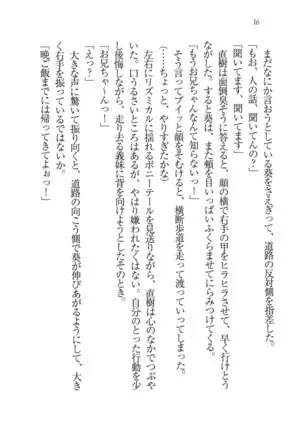 36
まだなにか言おうとしている葵をさえぎって、道路の反対側を指差した。
「もお、人の話、聞いてんの?」
「聞いてます、聞いてます」
直樹は面倒臭そうに答えると、顔の横で右手の甲をヒラヒラさせて、早く行けとう
ながした。すると葵は、また頬を目いっぱいふくらませてにらみつけてくる。
「もうお兄ちゃんなんて知らないっ!」
そう言ってプイッと顔をそむけると、横断歩道を走って渡っていってしまった。
(……ちょっと、やりすぎたかな)
左右にリズミカルに揺れるポニーテールを見送りながら、直樹は心のなかでつぶや
いた。口うるさいところはあるが、やはり嫌われたくはない。自分のとった行動を少
し後悔しながら、走り去る義妹に背を向けようとしたそのとき。
「お兄ちゃ〜んっ!」
「えっ?」
大きな声に驚いて振り向くと、道路の向こう側で葵が伸びあがるようにして、大き
く右手を振っているではないか。
「晩ご飯までには帰ってきてよぉっ!」